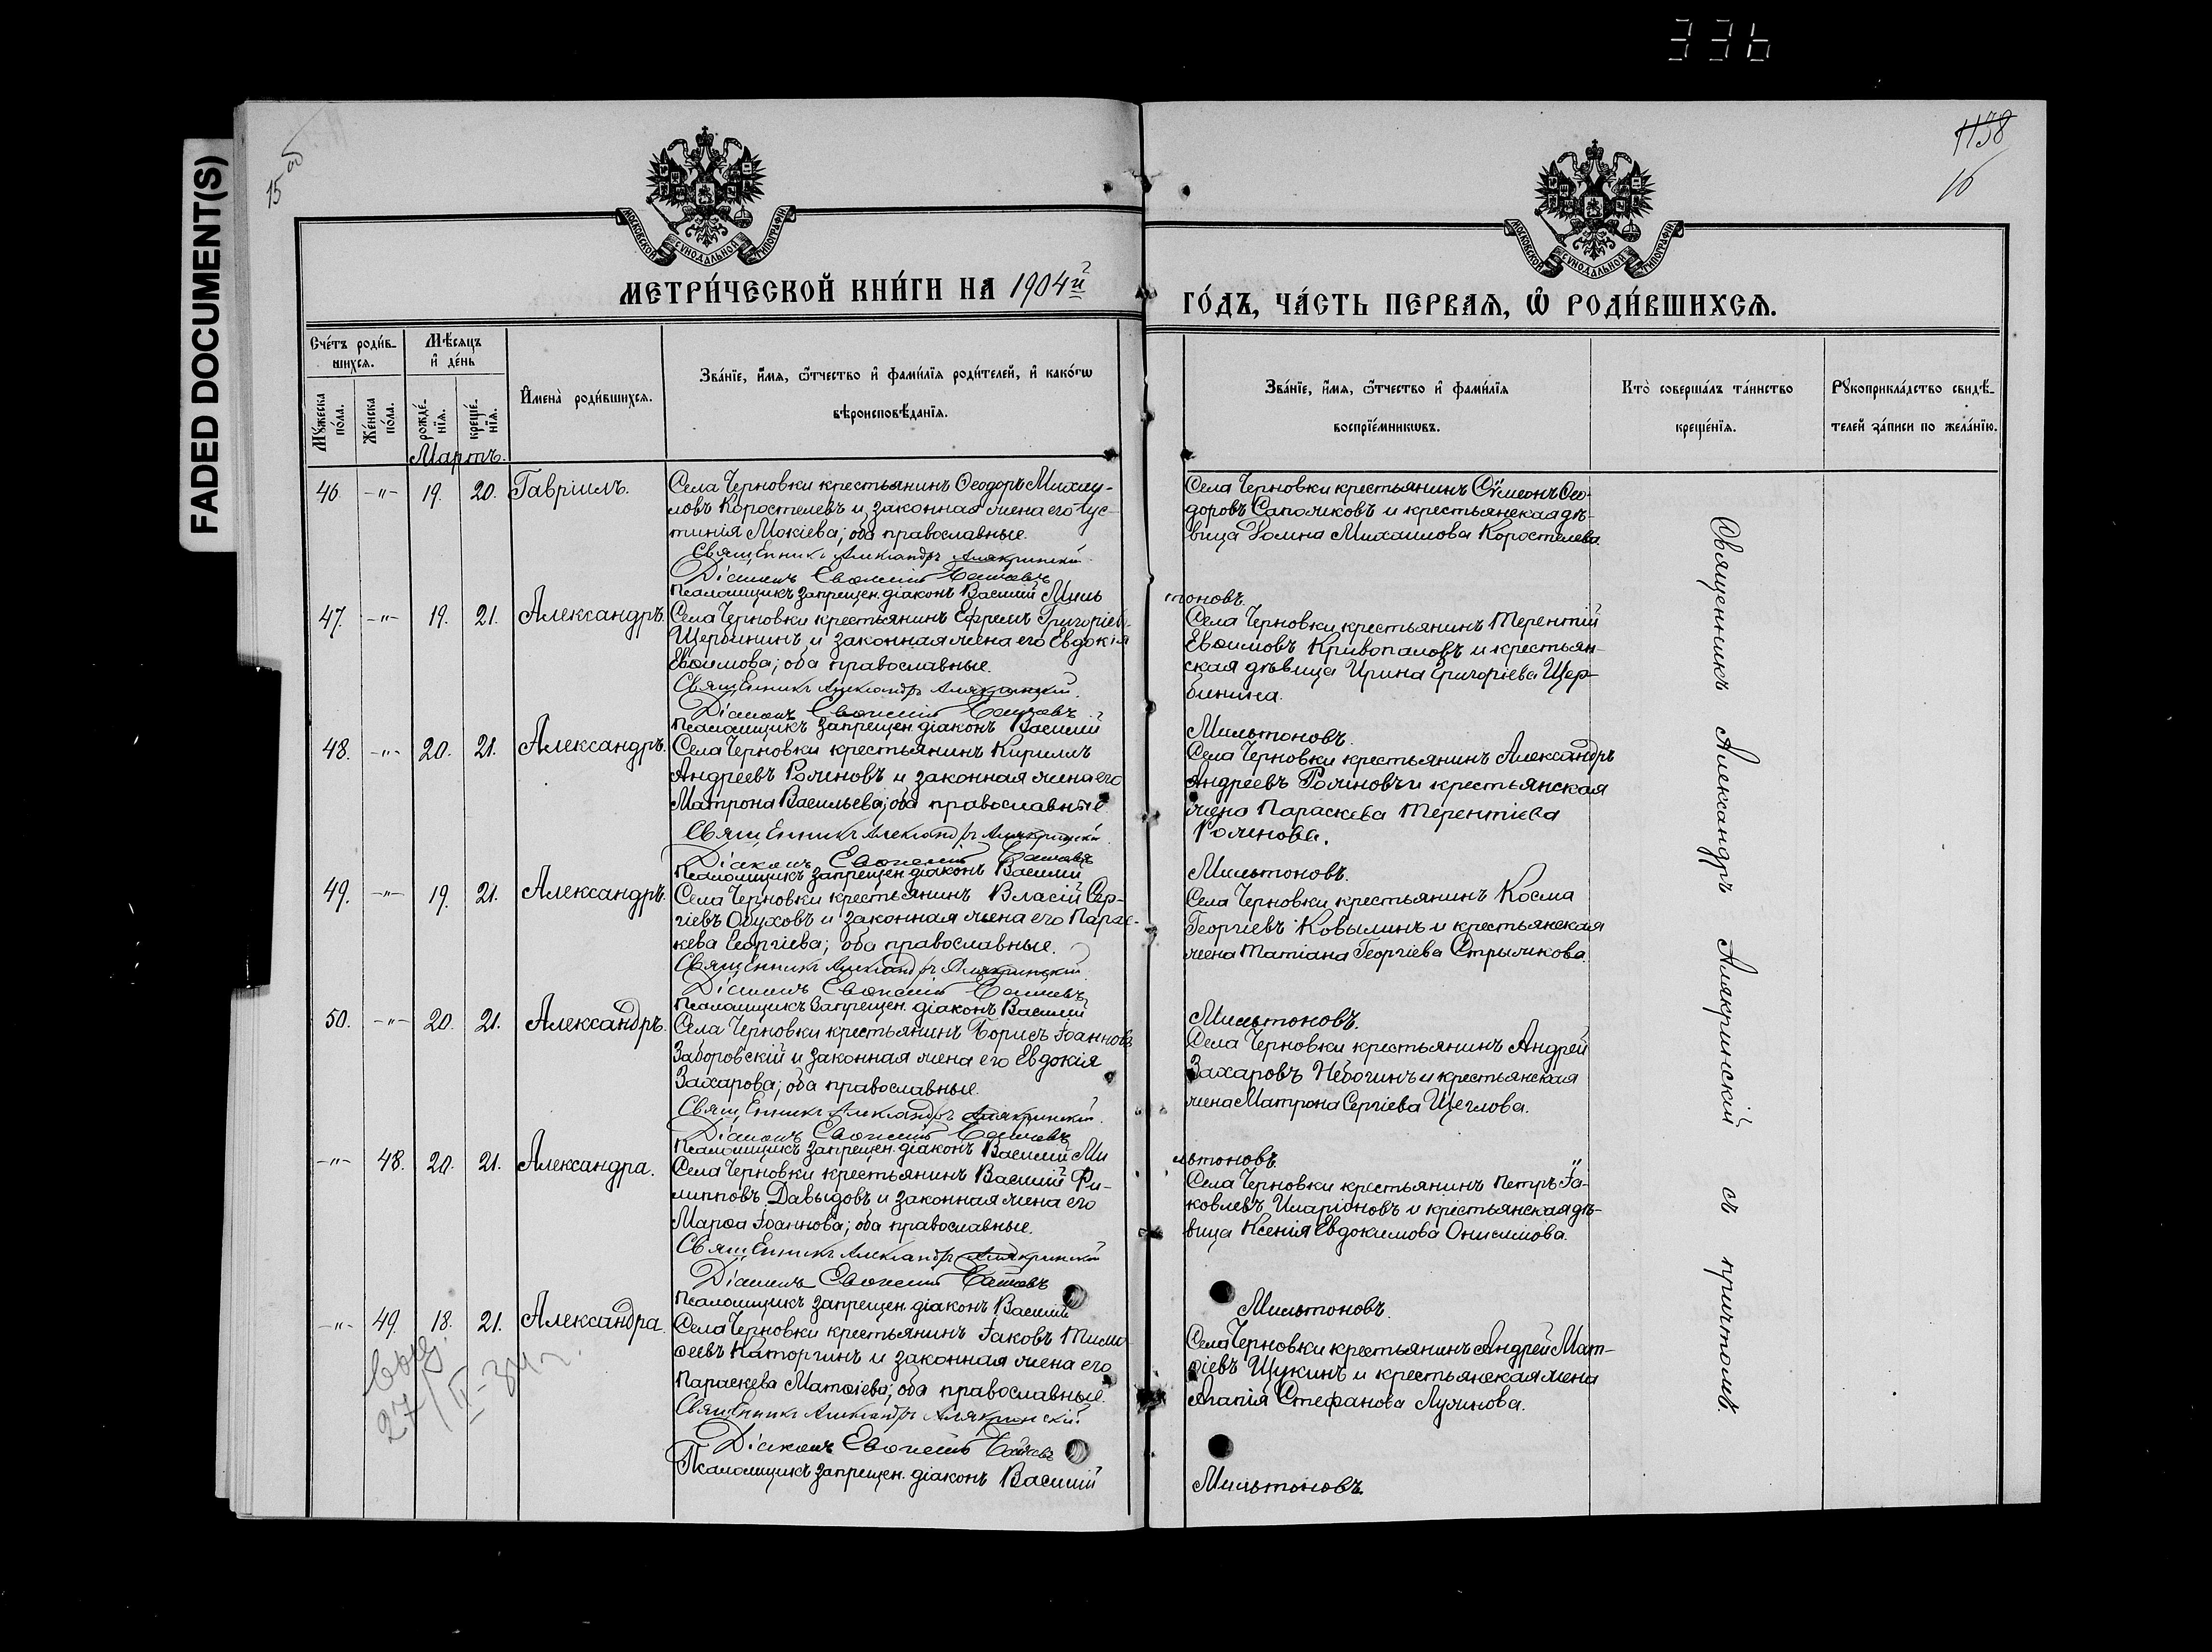 336
FADED DOCUMENT(S)
15 об
1138
16
МОСКОВСКОЙ СѴНОДАЛЬНОЙ ТИПОГРАФІИ
МОСКОВСКОЙ СѴНОДАЛЬНОЙ ТИПОГРАФІИ
МЕТРИ́ЧЕСКОЙ КНИ́ГИ НА 1904й
ГО́ДЪ, ЧА́СТЬ ПЕРВАѦ, Ѽ РОДИ́ВШИХСѦ.
Сче́тъ роди́в-
шихсѧ.
Мѣ́сѧцъ
и҆ де́нь
Мꙋ́жеска по́ла.
Же́нска по́ла.
рожде́-нїѧ.
креще́-нїѧ.
И҆мена̀ роди́вшихсѧ.
Зва́нїе, и҆́мѧ, ѻ҆́тчество и҆ фами́лїѧ роди́телей, и҆ како́гѡ
вѣроисповѣ́данїѧ.
Зва́нїе, и҆́мѧ, ѻ҆́тчество и҆ фами́лїѧ
воспрїе́мникѡвъ.
Кто̀ соверша́лъ та́инство
креще́нїѧ.
Рꙋкоприкла́дство свидѣ́-
телей за́писи по жела́нїю.
Мартъ.
46. -"- 19. 20. Гавріилъ.
Села Черновки крестьянинъ Ѳеодоръ Михаи-
ловъ Коростелевъ и законная жена его Іус-
тинія Мокіева; оба православные.
Священникъ Александръ Алякринскій.
Діаконъ Евѳимій
Псаломщикъ запрещен. діаконъ Василій Миль
тоновъ.
Села Черновки крестьянинъ Сѵмеонъ Ѳео-
доровъ Сапожковъ и крестьянская дѣ-
вица Домна Михаилова Коростелева.
47. -"- 19. 21. Александръ.
Села Черновки крестьянинъ Ефремъ Григоріевъ
Щербининъ и законная жена его Евдокія
Евѳимова; оба православные.
Священникъ Александръ Алякринскій.
Діаконъ Евѳимій
Псаломщикъ запрещен. діаконъ Василій
Мильтоновъ.
Села Черновки крестьянинъ Терентій
Евѳимовъ Кривопаловъ и крестьян-
ская дѣвица Ирина Григоріева Щер-
бинина.
48. -"- 20. 21. Александръ.
Села Черновки крестьянинъ Кириллъ
Андреевъ Роминовъ и законная жена его
Матрона Васильева; оба православные
Священникъ Александръ Алякринскій
Діаконъ Евѳимій
Псаломщикъ запрещен. діаконъ Василій
Мильтоновъ.
Села Черновки крестьянинъ Александръ
Андреевъ Роминовъ и крестьянская
жена Параскева Терентіева
49. -"- 19. 21. Александръ.
Села Черновки крестьянинъ Власій Сер-
гіевъ Обуховъ и законная жена его Парас-
кева Георгіева; оба православные.
Священникъ Александръ Алякринскій
Діаконъ Евѳимій
Псаломщикъ запрещен. діаконъ Василій
Мильтоновъ.
Села Черновки крестьянинъ Косма
Георгіевъ Ковылинъ и крестьянская
жена Татіана Георгіева Стрыжкова.
50. -"- 20. 21. Александръ.
Села Черновки крестьянинъ Борисъ Іоанновъ
Заборовскій и законная жена его Евдокія
Захарова; оба православные.
Священникъ Александръ Алякринскій.
Діаконъ Евѳимій
Псаломщикъ запрещен. діаконъ Василій Ми
льтоновъ.
Села Черновки крестьянинъ Андрей
Захаровъ Небогинъ и крестьянская
жена Матрона Сергіева Щеглова.
-"- 48. 20. 21. Александра.
Села Черновки крестьянинъ Василій Фи-
липповъ Давыдовъ и законная жена его
Марѳа Іоаннова; оба православные.
Священникъ Александръ Алякринскій
Діаконъ Евѳимій
Псаломщикъ запрещен. діаконъ Василій
Мильтоновъ.
Села Черновки крестьянинъ Петръ Іа-
ковлевъ Иларіоновъ и крестьянская дѣ-
вица Ксенія Евдокимова Онисимова.
-"- 49. 18. 21. Александра.
Села Черновки крестьянинъ Іаковъ Тимо-
ѳеевъ Каторгинъ и законная жена его
Параскева Матѳіева; оба православные.
Священникъ Александръ Алякринскій
Діаконъ Евѳимій
Псаломщикъ запрещен. діаконъ Василій
Мильтоновъ.
Села Черновки крестьянинъ Андрей Мат-
ѳіевъ Щукинъ и крестьянская жена
Агапія Стефанова Лузинова.
27/II-34 г.
Священникъ Александръ Алякринскій съ причтомъ.